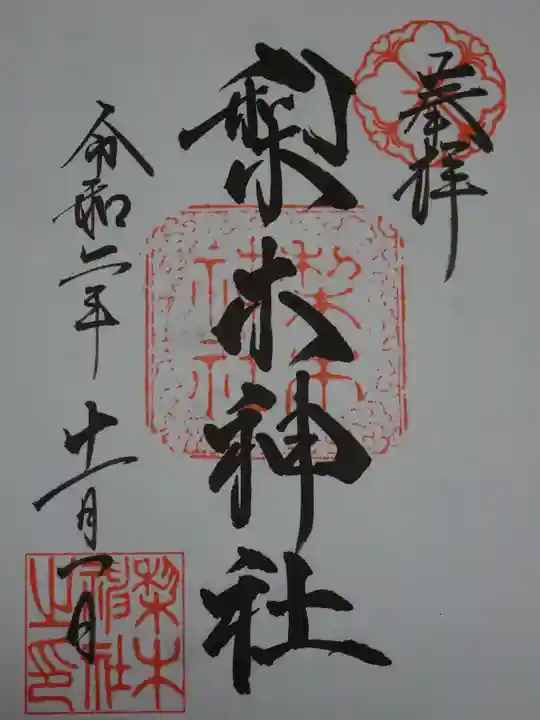 奉拝
梨木神社
令和二年十一月一日
梨木神社
梨木神社之印